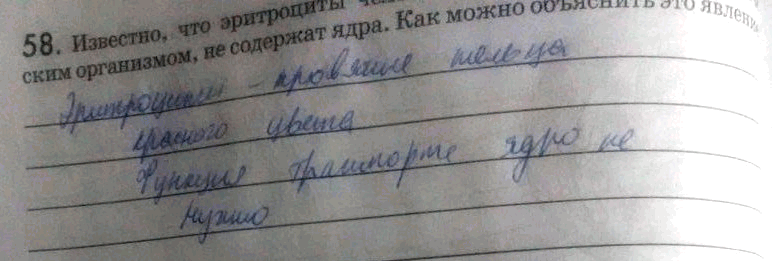 58. Известно, что эритроциты
ским организмом, не содержат ядра. Как можно объяснить это явлени
Эритроциты - кровяные тельца
красного цвета
Функция транспорта ядро не
нужно